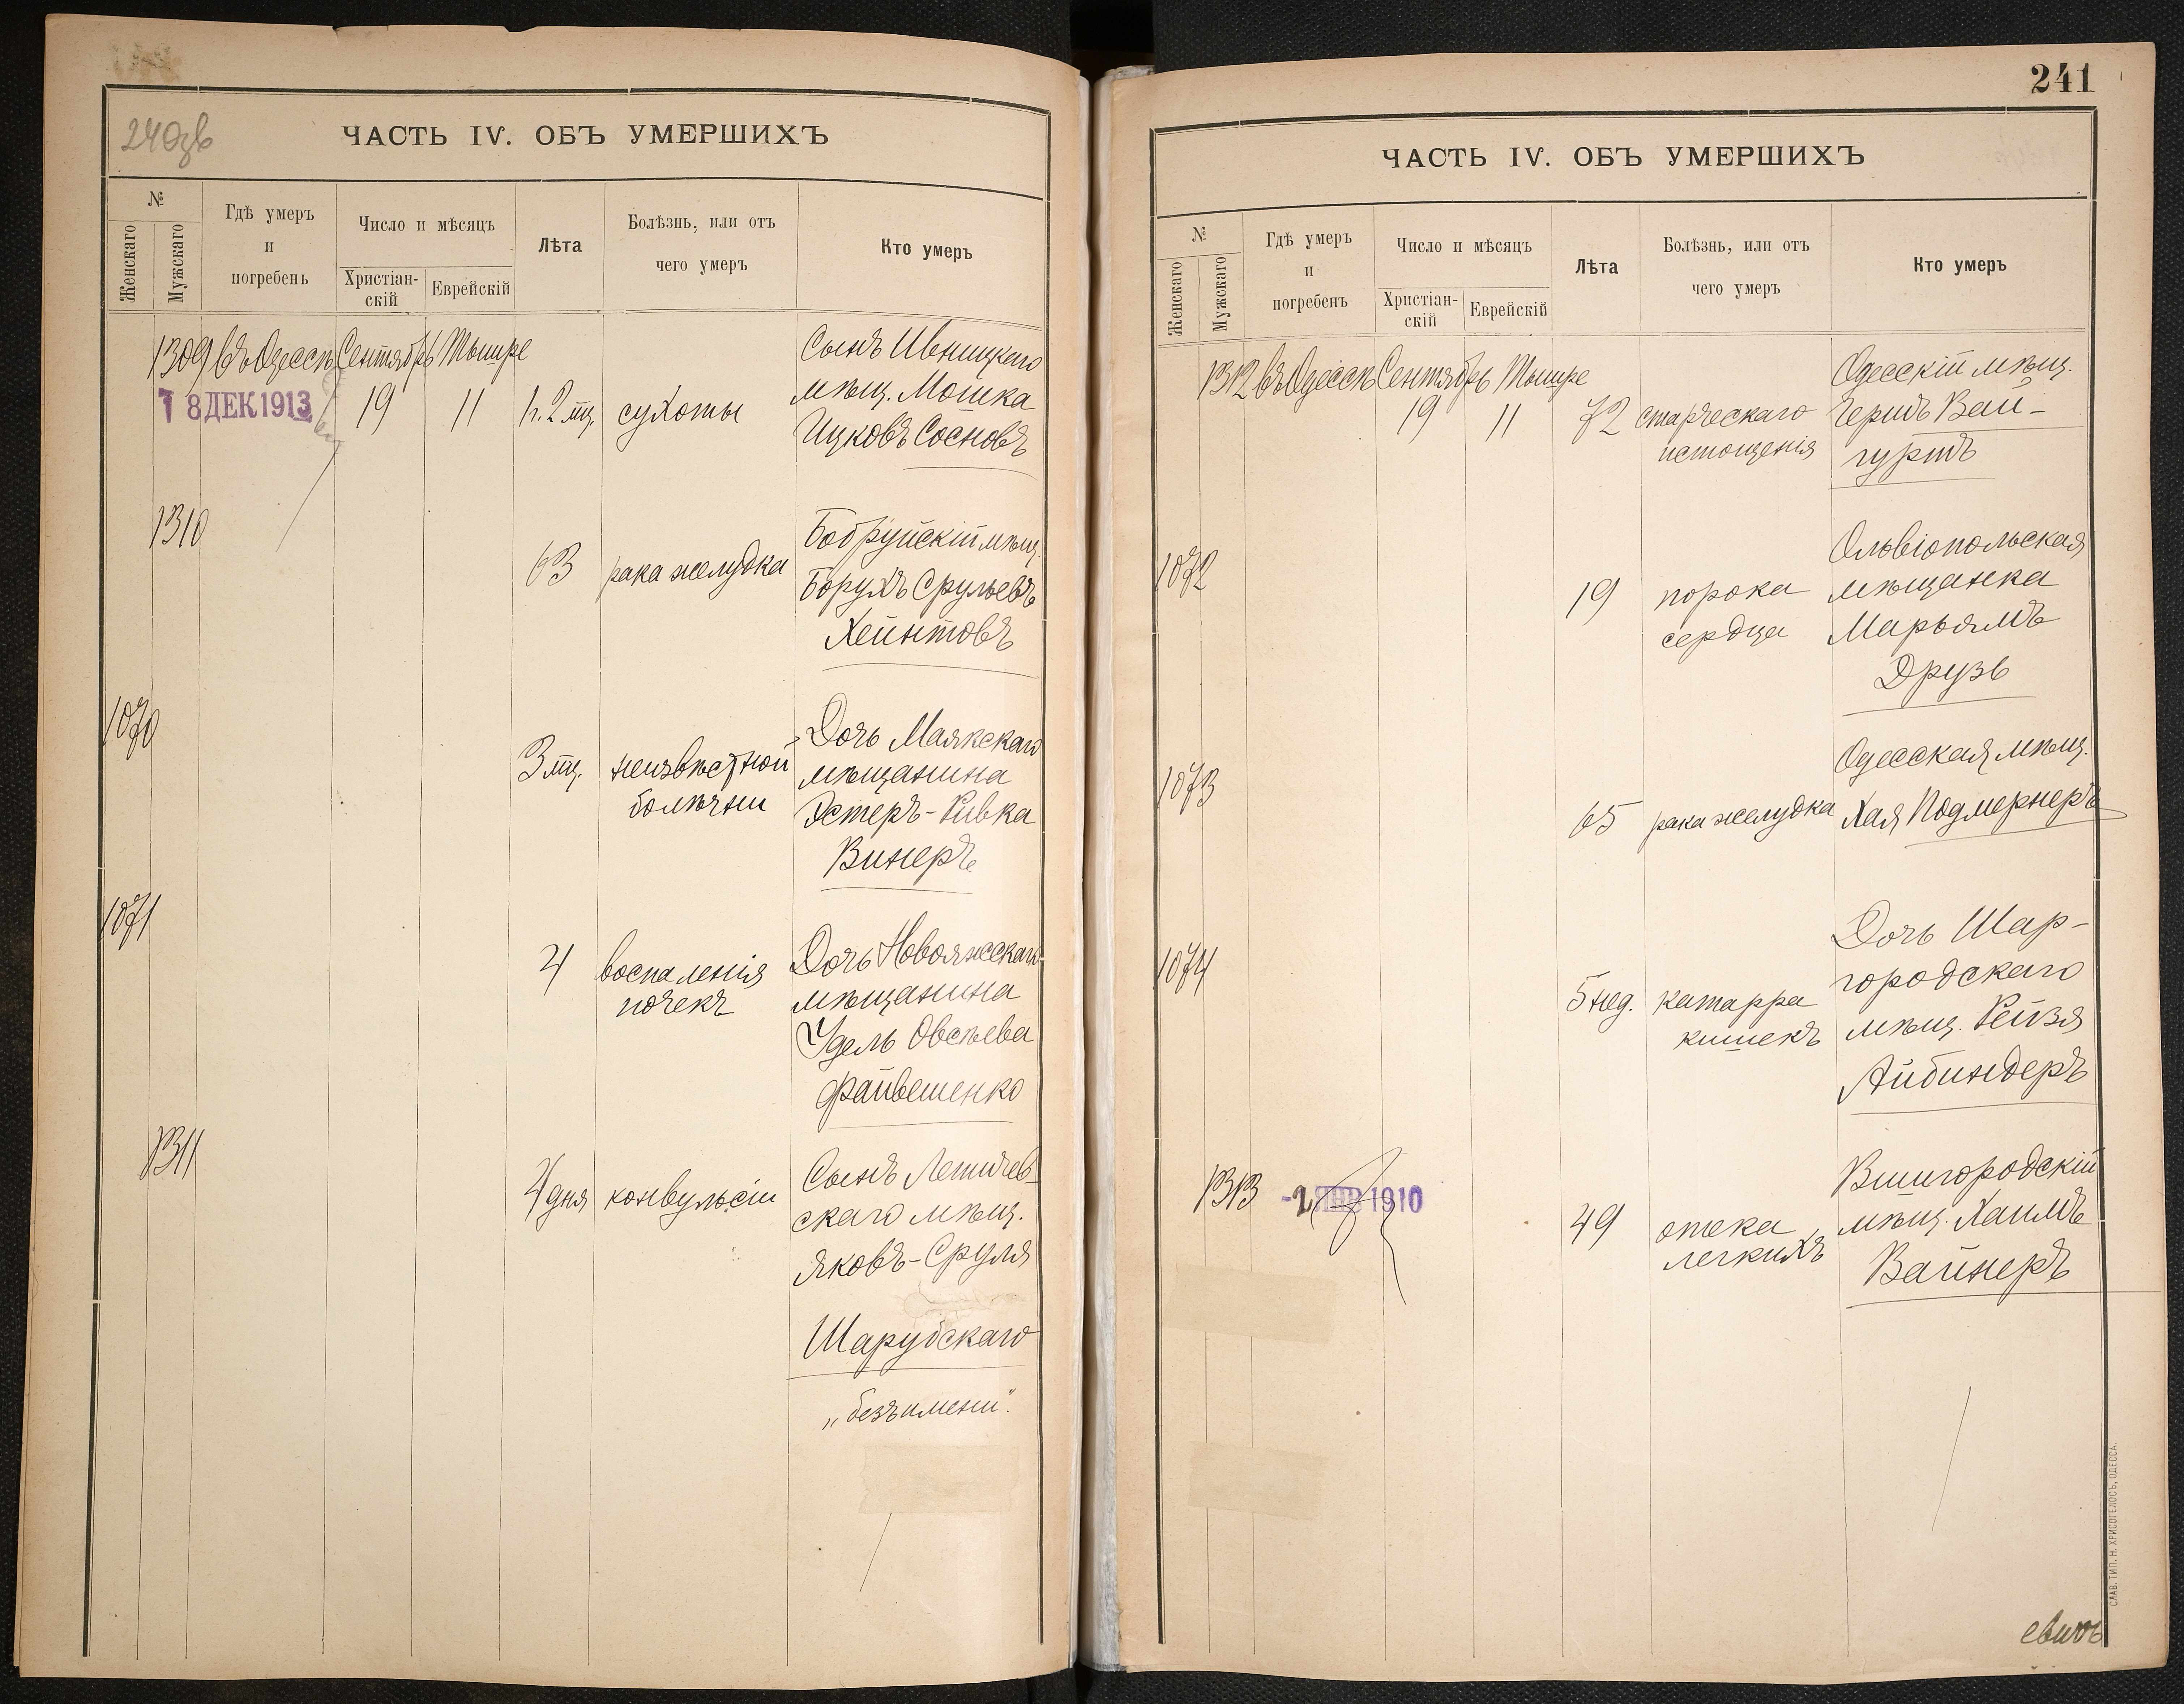 240зв
ЧАСТЬ IV. ОБЪ УМЕРШИХЪ
№
Женскаго
Мужскаго
Гдѣ умеръ
и
погребень
Число и мѣсяцъ
Христіан-
скій
Еврейскій
Лѣта
Болѣзнь, или отъ
чего умеръ
Кто умеръ
1309 въ Одессѣ Сентябрь Тишре
18 ДЕК 1913
19 11 1 г. 2 мц. сухоты
Сынъ Ивницкаго
мѣщ. Мошка
Ицковъ Сосновъ
1310
63 рака желудка
Бобруйскій мѣщ.
Борухъ Срульевъ
Хейнтовъ
1070
3 мц. неизвѣстной
болѣзни
Дочь Маякскаго
мѣщанина
Эстеръ-Ривка
Винеръ
1071
4 воспаленія
почекъ
Дочь
мѣщанина
Удель Овсѣева
Файвешенко
1311
4 дня конвульсіи
Сынъ Летичев-
скаго мѣщ.
Яковъ-Сруля
Шарубскаго
„безъ имени".
241
ЧАСТЬ IV. ОБЪ УМЕРШИХЪ
№
Женскаго
Мужскаго
Гдѣ умеръ
и
погребенъ
Число и мѣсяцъ
Христіан-
скій
Еврейскій
Лѣта
Болѣзнь, или отъ
чего умеръ
Кто умеръ
1312 въ Одессѣ Сентябрь Тишре
19 11 72 старческаго
истощенія
Одесскій мѣщ.
Гершъ Вай-
гуртъ
1072
19 порока
сердца
Ольвіопольская
мѣщанка
Марьямъ
Друзь
1073
65 рака желудка
Одесская мѣщ.
Хая Подмернеръ
1074
5 нед. катарра
кишекъ
Дочь Шар-
городскаго
мѣщ. Рейзя
Айбиндеръ
1313 -2 ЯНВ 1910
49 отека
легкихъ
Вишгородскій
мѣщ. Хаимъ
Вайнеръ
евичъ
СЛАВ. ТИП. Н. ХРИСОГЕЛОСЪ, ОДЕССА.